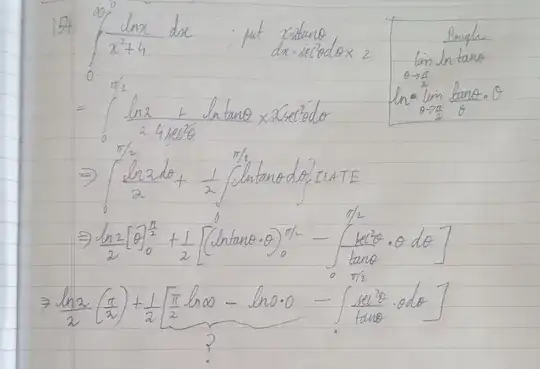 154 ∫₀^∞ lnx / x²+4 dx . put x=2tanθ
dx = sec²θdθ × 2
= ∫₀^{π/2} ln2 + lntanθ / 4sec²θ × 2sec²θdθ
⇒ ∫₀^{π/2} ln2 dθ / 2 + 1/2 ∫₀^{π/2} lntanθ dθ ILATE
⇒ ln2/2 [θ]₀^{π/2} + 1/2 [(lntanθ·θ)₀^{π/2} − ∫₀^{π/2} sec²θ/tanθ · θ dθ]
⇒ ln2/2 (π/2) + 1/2 [π/2 ln∞ − ln0·0 − ∫₀^{π/2} sec²θ/tanθ · θdθ]
?
Rough
lim θ→π/2 ln tanθ
ln lim θ→π/2 tanθ/θ · θ